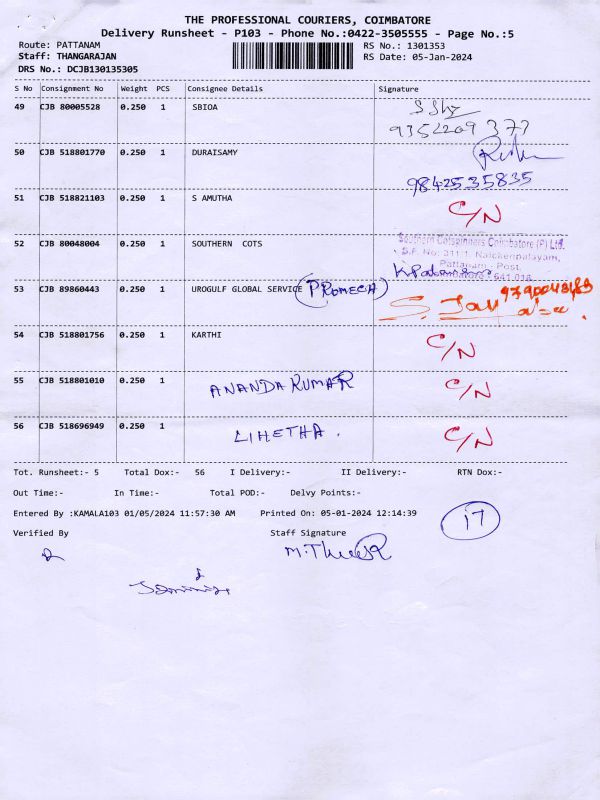 THE PROFESSIONAL COURIERS, COIMBATORE
Delivery Runsheet - P103 - Phone No.:0422-3505555 - Page No.:5
Route: PATTANAM RS No.: 1301353
Staff: THANGARAJAN RS Date: 05-Jan-2024
DRS No.: DCJB130135305
S No Consignment No Weight PCS Consignee Details Signature
49 CJB 80005528 0.250 1 SBIOA
9352209377
50 CJB 518801770 0.250 1 DURAISAMY
9842535835
51 CJB 518821103 0.250 1 S AMUTHA C/N
52 CJB 80048004 0.250 1 SOUTHERN COTS
Southern Cotspinners Coimbatore (P) Ltd.
S.F. No: 311/1, Naickenpalayam,
Pattanam - Post,
53 CJB 89860443 0.250 1 UROGULF GLOBAL SERVICE (PROMECH)
54 CJB 518801756 0.250 1 KARTHI C/N
55 CJB 518801010 0.250 1 ANANDA KUMAR C/N
56 CJB 518696949 0.250 1 LIHETHA. C/N
Tot. Runsheet:- 5 Total Dox:- 56 I Delivery:- II Delivery:- RTN Dox:-
Out Time:- In Time:- Total POD:- Delvy Points:-
Entered By :KAMALA103 01/05/2024 11:57:30 AM Printed On: 05-01-2024 12:14:39 17
Verified By Staff Signature